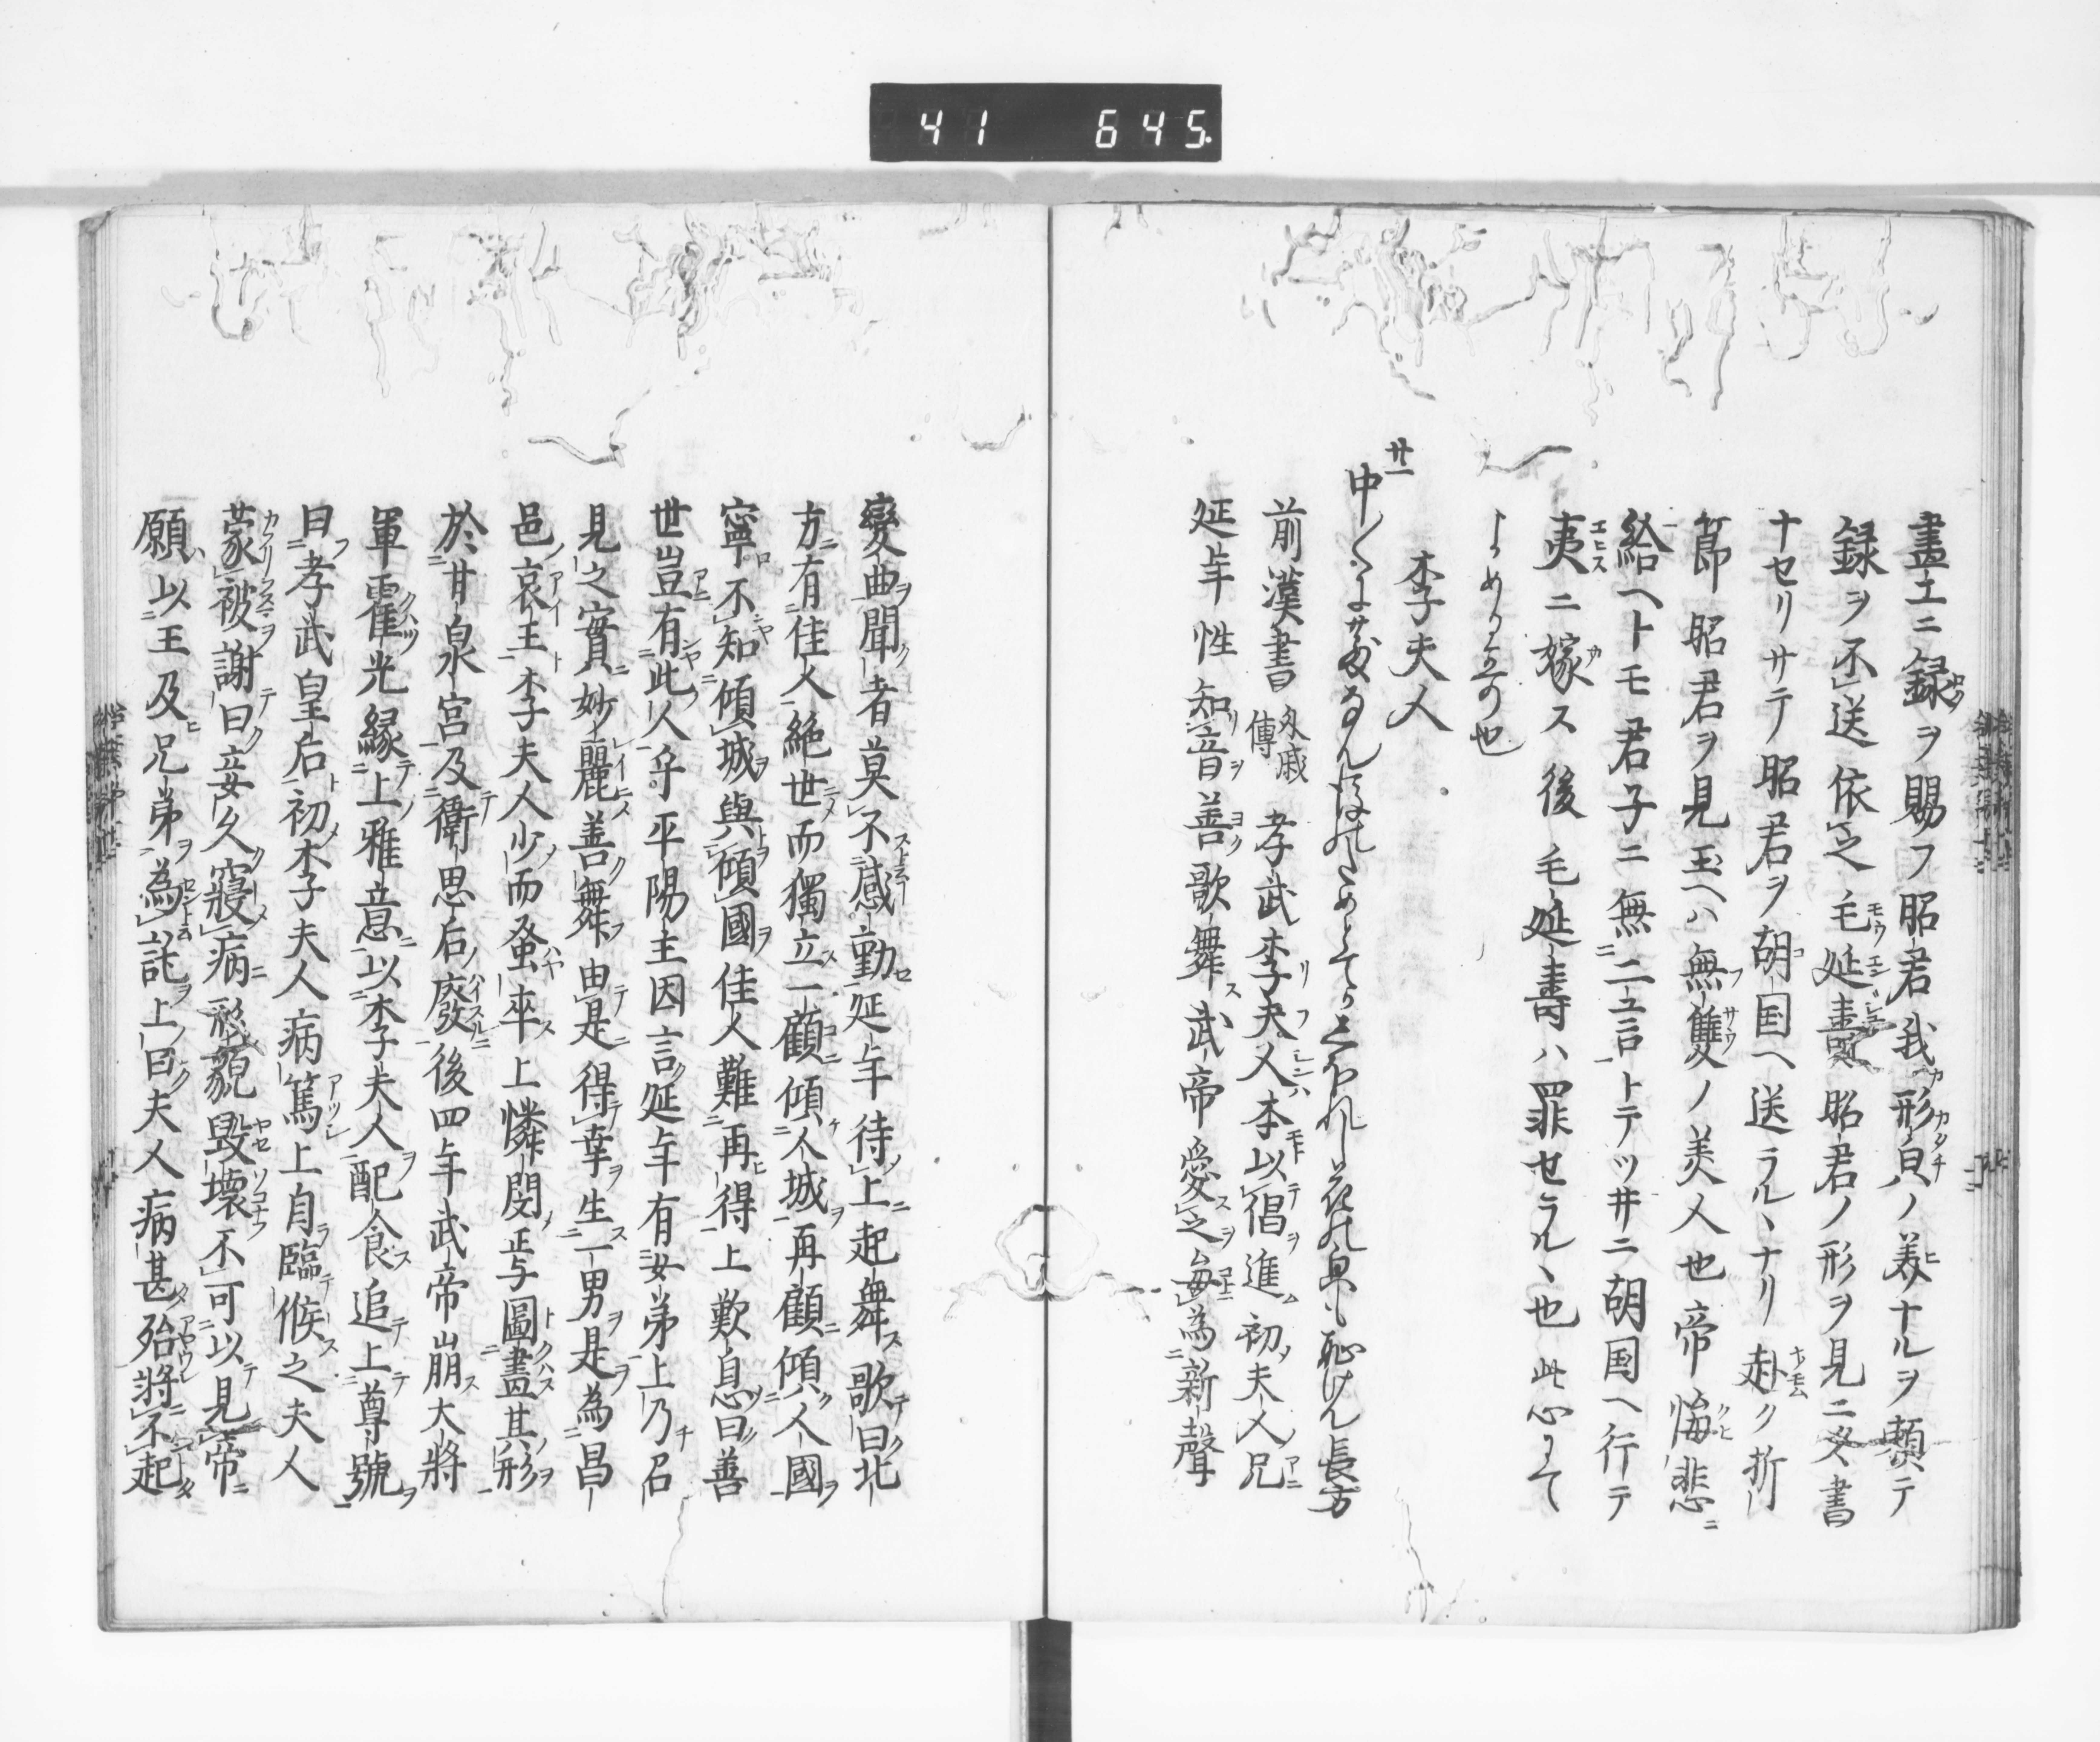 41 645
畫工ニ録ヲ賜フ昭君我形皃ノ美ナルヲ頼テ
録ヲ不送依之毛延壽昭君ノ形ヲ見ニクヽ書
ナセリサテ昭君ヲ胡国ヘ送ラルヽナリ赴ク折
節昭君ヲ見玉ヘハ無雙ノ美人也帝悔悲
給ヘトモ君子ニ無二言トテツ井ニ胡国ヘ行テ
夷ニ嫁ス後毛延壽ハ罪セラルヽ也此心にて
よめる哥也
李夫人
廿一
前漢書外戚傳孝武李夫人本以倡進初夫人兄
延年性知音善歌舞武帝愛之毎為新聲
變曲聞者莫不感動延年待上起舞歌曰北
方有佳人絶世而獨立一顧傾人城再顧傾人國
寧不知傾城與傾國佳人難再得上歎息曰善
世豈有此人乎平陽主因言延年有女弟上乃召
見之實妙麗善舞由是得幸生一男是為昌
邑哀王李夫人少而蚤卒上憐閔焉圖畫其形
於甘泉宮及衛思后廢後四年武帝崩大將
軍霍光縁上雅意以李夫人配食追上尊號
曰孝武皇后初李夫人病篤上自臨候之夫人
蒙被謝曰妾久寢病形貌毀壞不可以見帝
願以王及兄弟為託上曰夫人病甚殆將不起